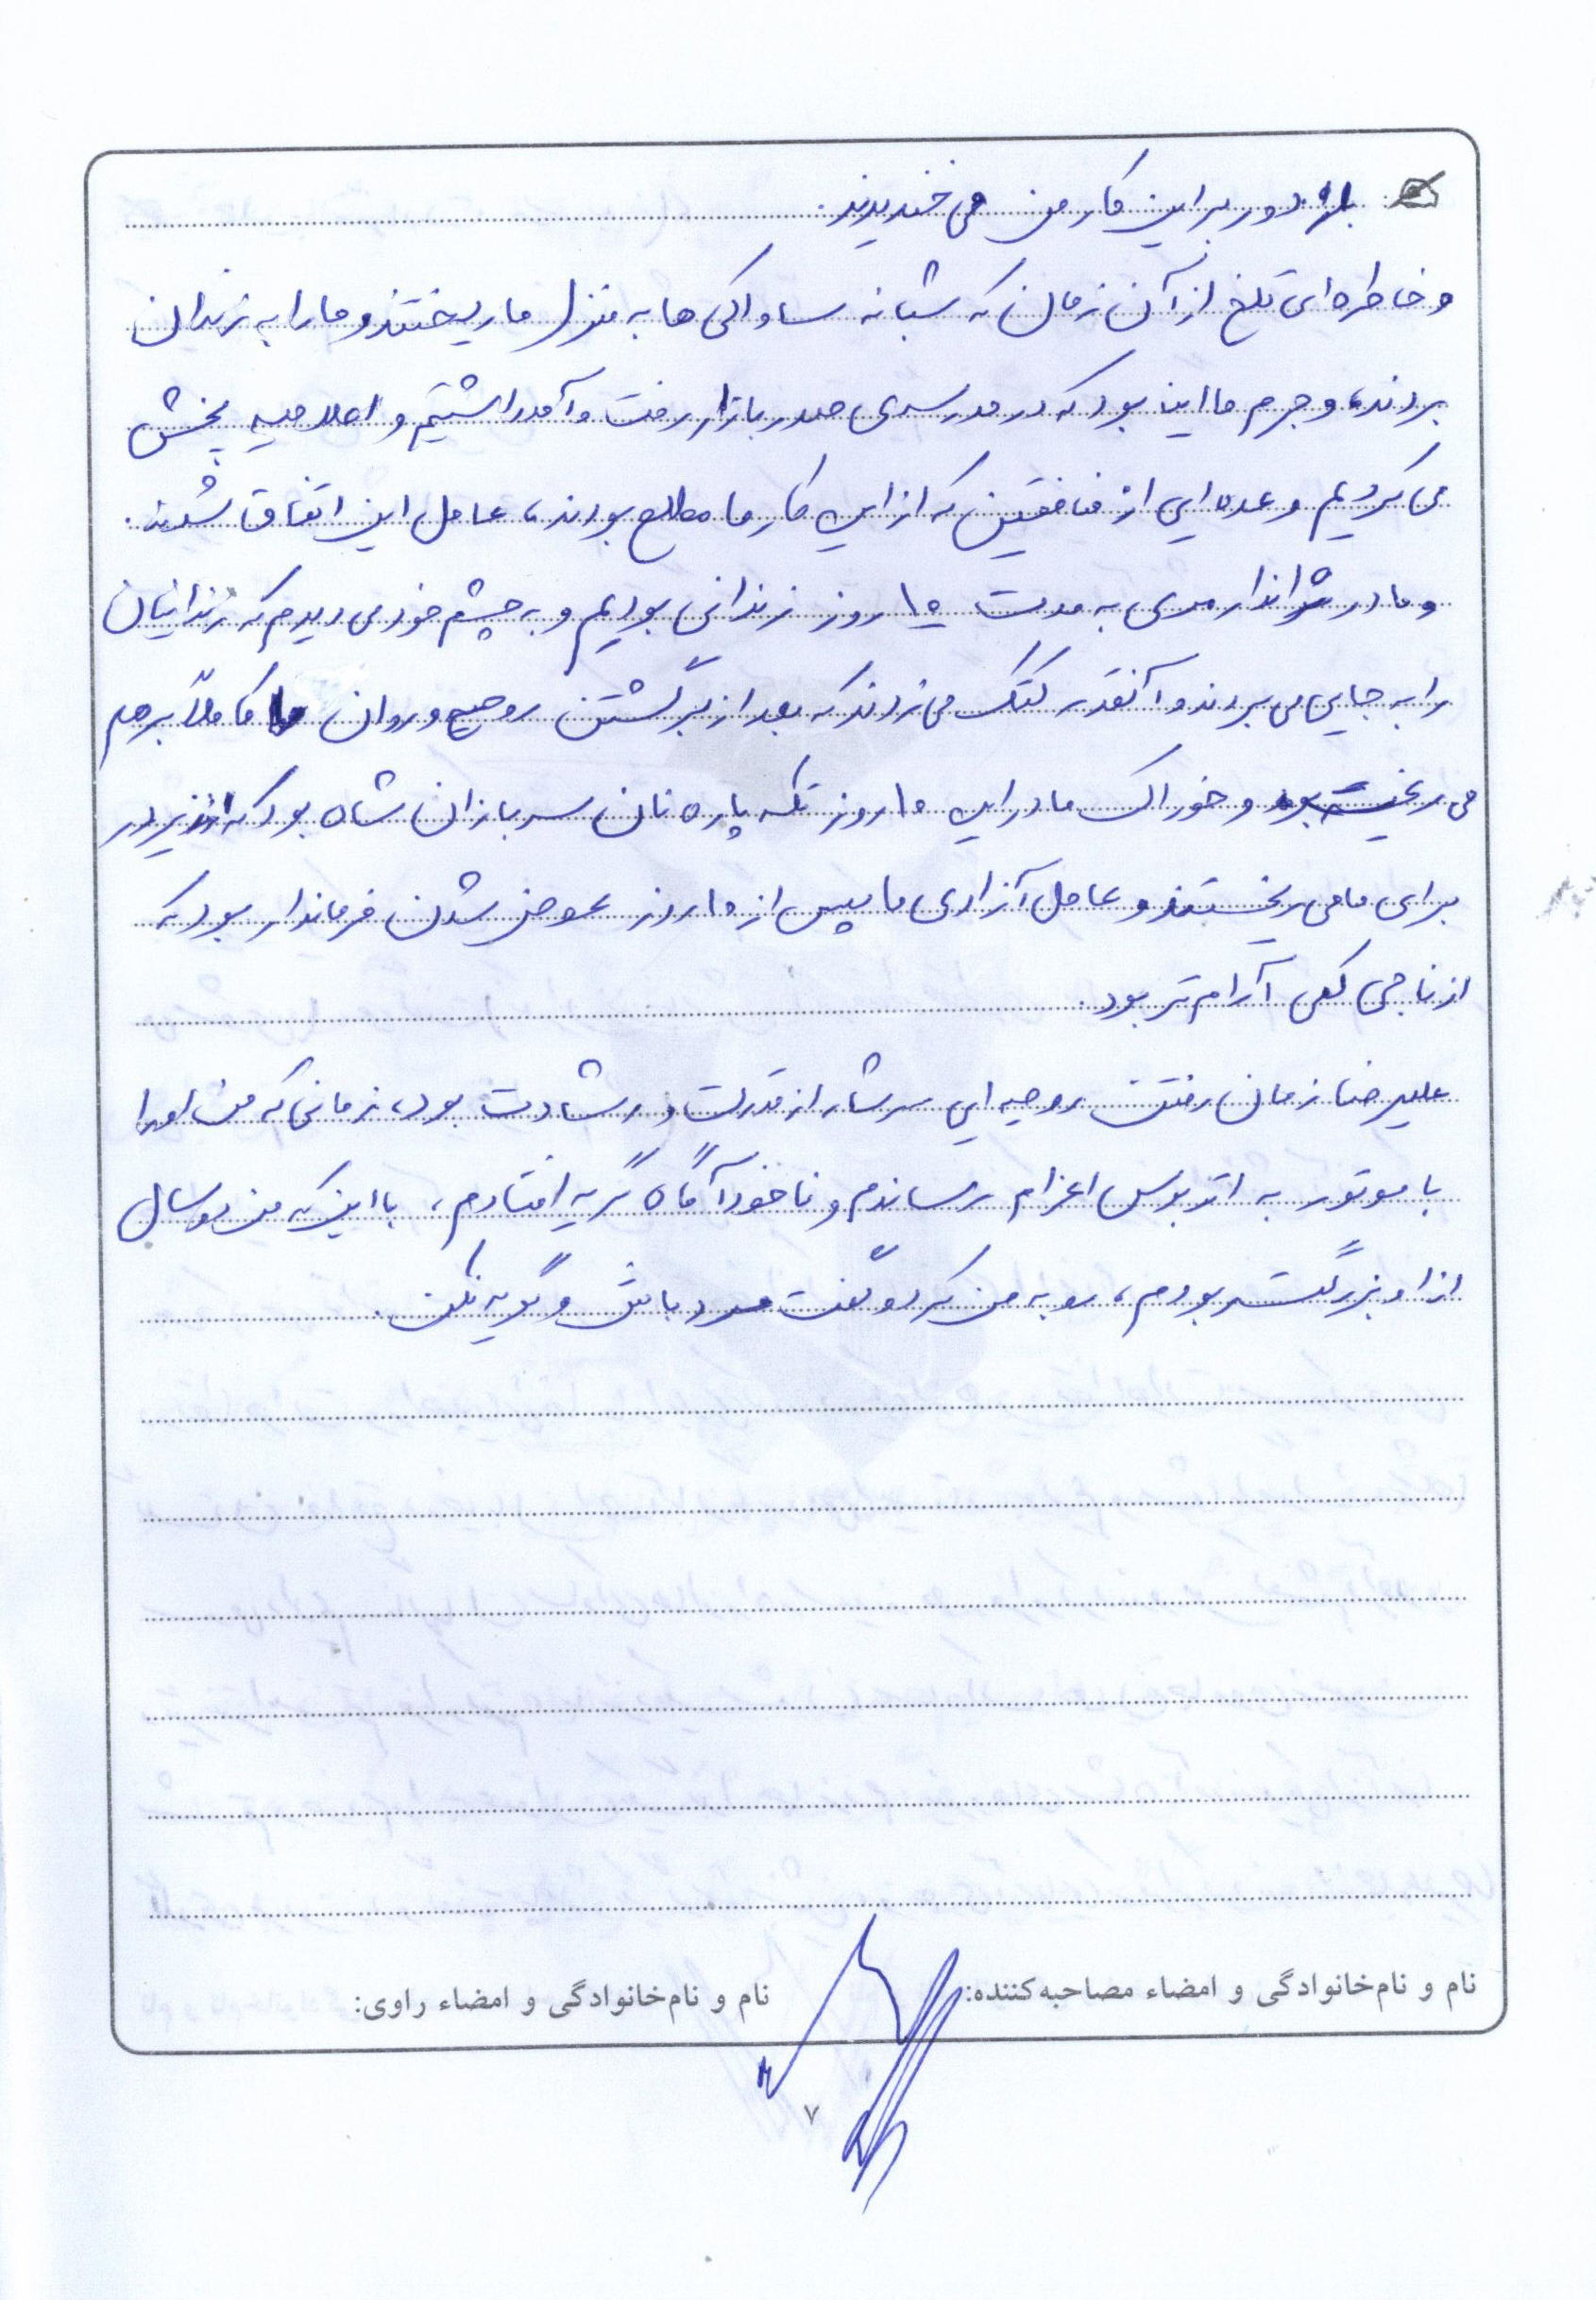 برادر بر این کار من می خندیدند.
و خاطره ای تلخ از آن زمان که شبانه ساواکی ها به منزل ما ریختند و ما را به زندان
بردند، و جرم ما این بود که در مدرسه ی صدر بازار رفت و آمد داشتیم و اعلامیه پخش
می کردیم و عده ایی از منافقین که از این کار ما مطلع بودند، عامل این اتفاق شدند.
و ما در ژاندارمری به مدت ۱۵ روز زندانی بودیم و به چشم خود می دیدم که زندانیان
را به جایی می بردند و آنقدر کتک می زدند که بعد از برگشتن روحیه و روان ما کاملاً برهم
می ریخت و خوراک ما در این ۱۵ روز تکه پاره نان سربازان شاه بود که از زیر در
برای ما می ریختند و عامل آزادی ما پس از ۱۵ روز عوض شدن فرماندار بود که
از ناجی کمی آرام تر بود.
علیرضا زمان رفتن روحیه ایی سرشار از قدرت و رشادت بود، زمانی که من او را
با موتور به اتوبوس اعزام رساندم و ناخودآگاه گریه افتادم، با این که من دو سال
از او بزرگتر بودم، رو به من کرد و گفت مرد باش و گریه نکن.
نام و نام‌خانوادگی و امضاء مصاحبه‌کننده:
نام و نام‌خانوادگی و امضاء راوی:
۷